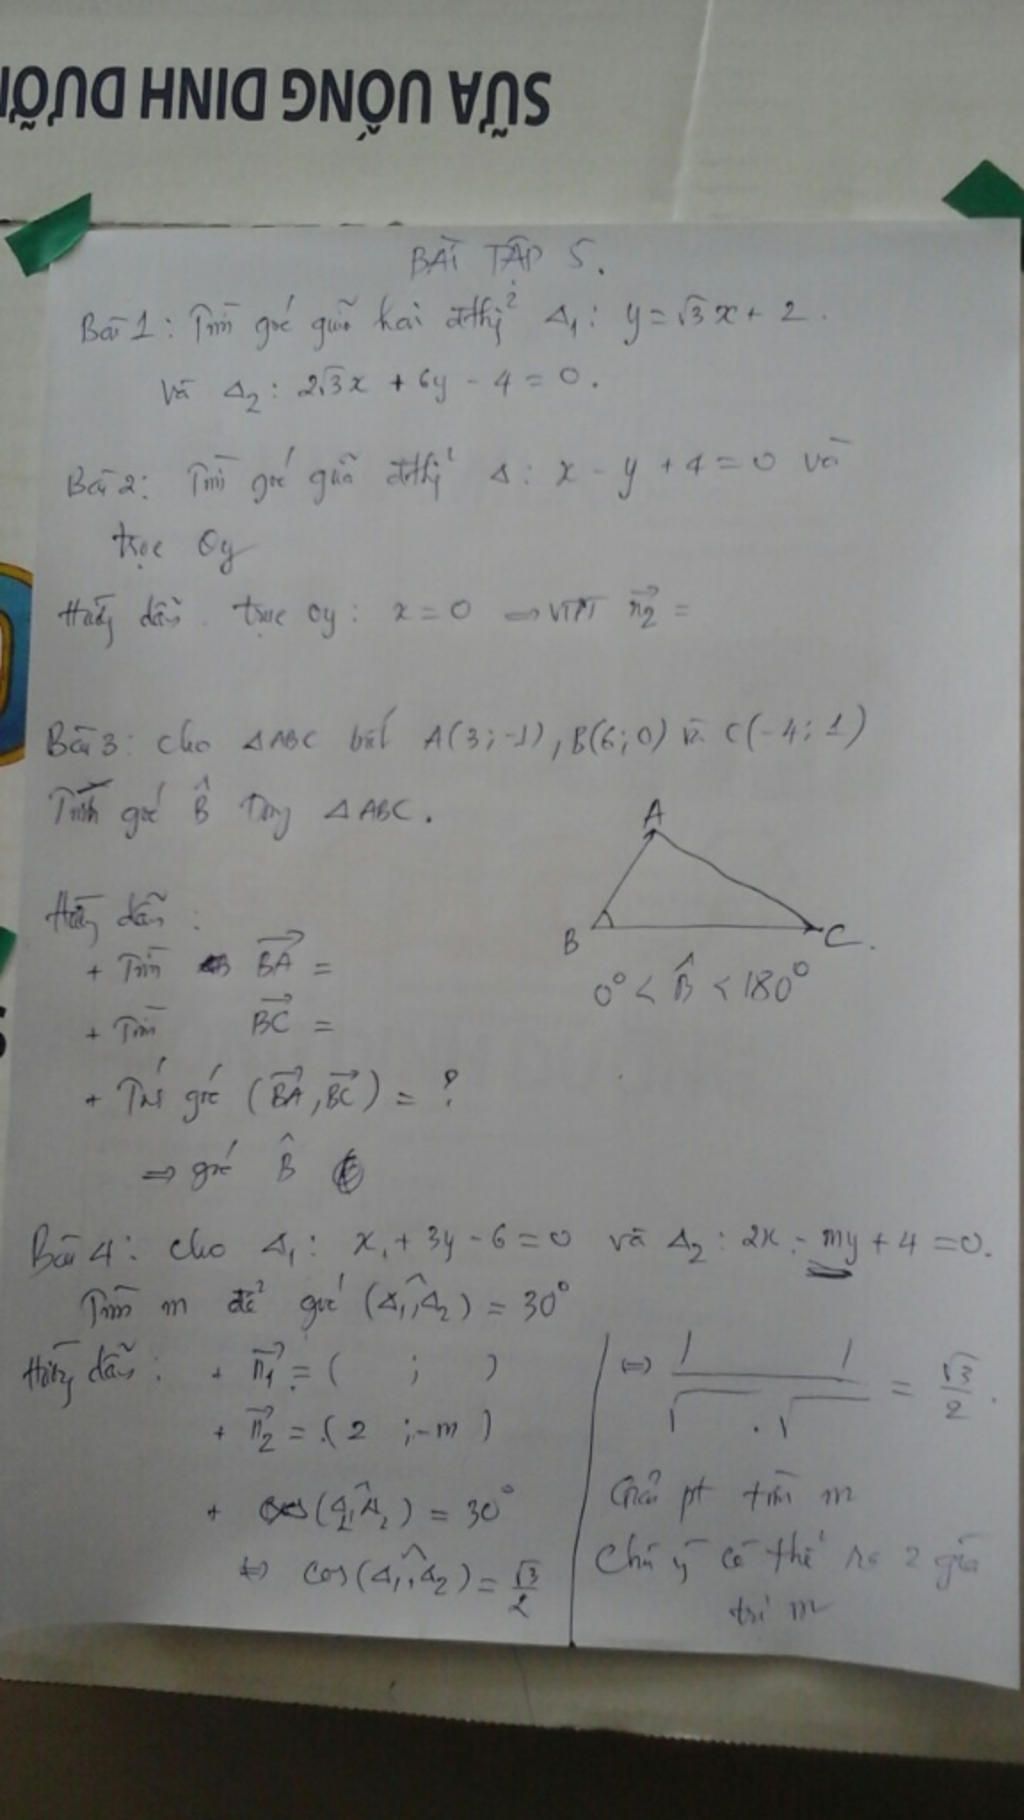 SỮA UỐNG DINH DƯỠN
BÀI TẬP 5.
Bài 1: Tìm góc giữa hai đthị Δ1: y = √3x + 2.
Và Δ2: 2√3x + 6y - 4 = 0.
Bài 2: Tìm góc giữa đthị Δ: x - y + 4 = 0 và
trục Oy
Hướng dẫn. trục Oy: x = 0 ⇒ VTPT n2 =
Bài 3: Cho ΔABC biết A(3;-1), B(6;0) và C(-4;1)
Tính góc B̂ trong ΔABC.
A
B
C.
0° < B̂ < 180°
Hướng dẫn:
+ Tìm BA =
+ Tìm BC =
+ Tính góc (BA, BC) = ?
⇒ góc B̂
Bài 4: Cho Δ1: x + 3y - 6 = 0 và Δ2: 2x - my + 4 = 0.
Tìm m để góc (Δ1, Δ2) = 30°
Hướng dẫn: + n1 = ( ; )
+ n2 = (2 ; -m)
+ (Δ1, Δ2) = 30°
⇔ cos(Δ1, Δ2) = √3/2
⇔ | | / √ . √ = √3/2.
Giải pt tìm m
Chú ý có thể ra 2 giá
trị m